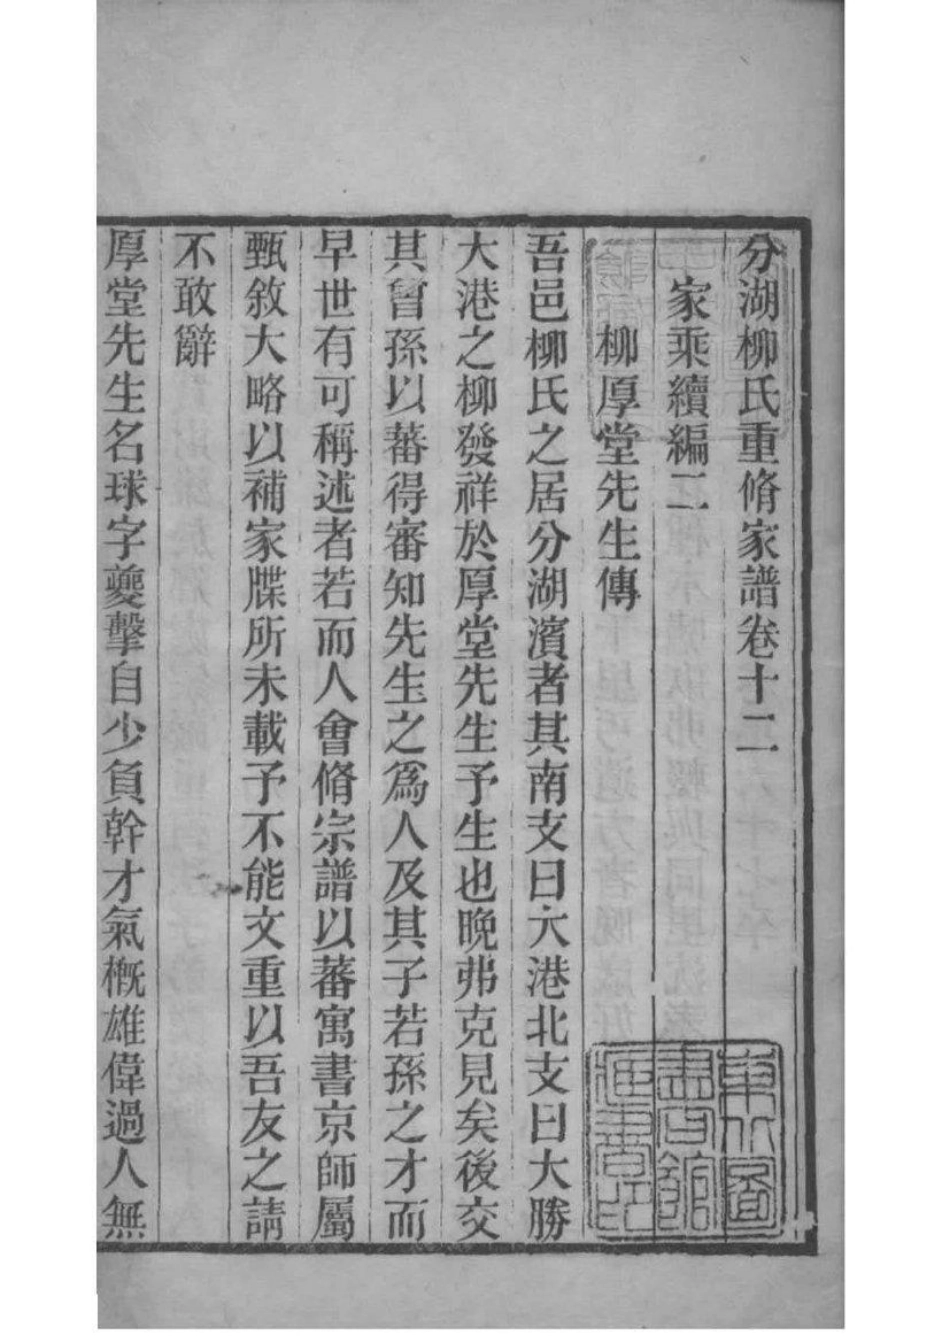 分湖柳氏重脩家譜卷十二
家乘續編二
柳厚堂先生傳
吾邑柳氏之居分湖濱者其南支曰大港北支曰大勝
大港之柳發祥於厚堂先生予生也晚弗克見矣後交
其曾孫以蕃得審知先生之爲人及其子若孫之才而
早世有可稱述者若而人會脩宗譜以蕃寓書京師屬
甄敘大略以補家牒所未載予不能文重以吾友之請
不敢辭
厚堂先生名球字夔擊自少負幹才氣槪雄偉過人無